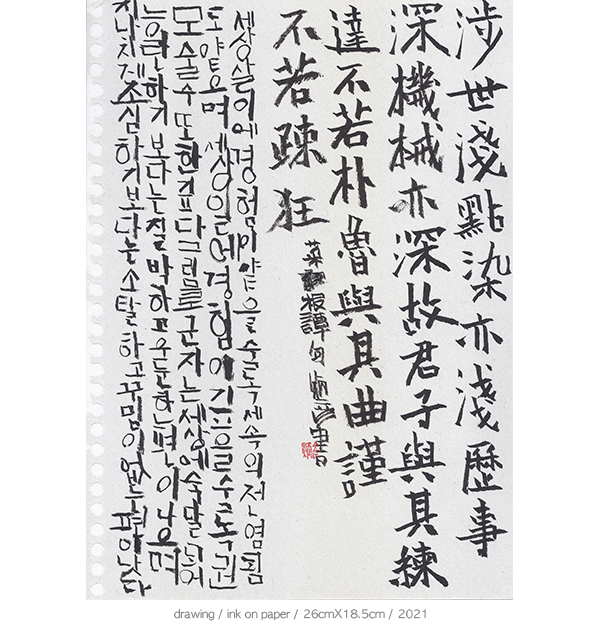 涉世淺點染亦淺歷事
深機械亦深故君子與其練
達不若朴魯與其曲謹
不若疎狂
菜根譚句 書
세상살이에경험이얕을수록세속의전염됨
도얕으며세상일에경험이깊을수록권
모술수또한깊다그럼으로군자는세상에숙달되어
능란하기보다는질박하고우둔한편이나으며
지나치게조심하기보다는소탈하고꾸밈이없는편이낫다
drawing / ink on paper / 26cmX18.5cm / 2021